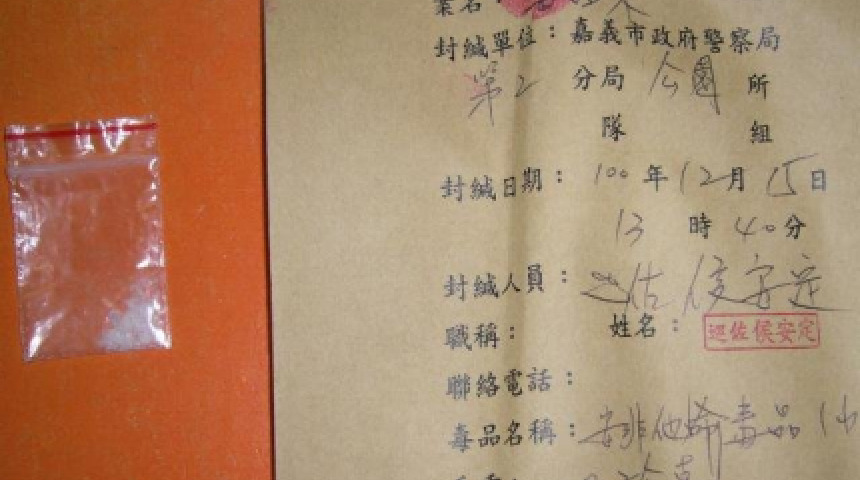 案名：
封緘單位：嘉義市政府警察局
第2分局公園所
隊 組
封緘日期：100年12月15日
13時40分
封緘人員：巡佐侯安定
職稱： 姓名：巡佐侯安定
聯絡電話：
毒品名稱：安非他命毒品